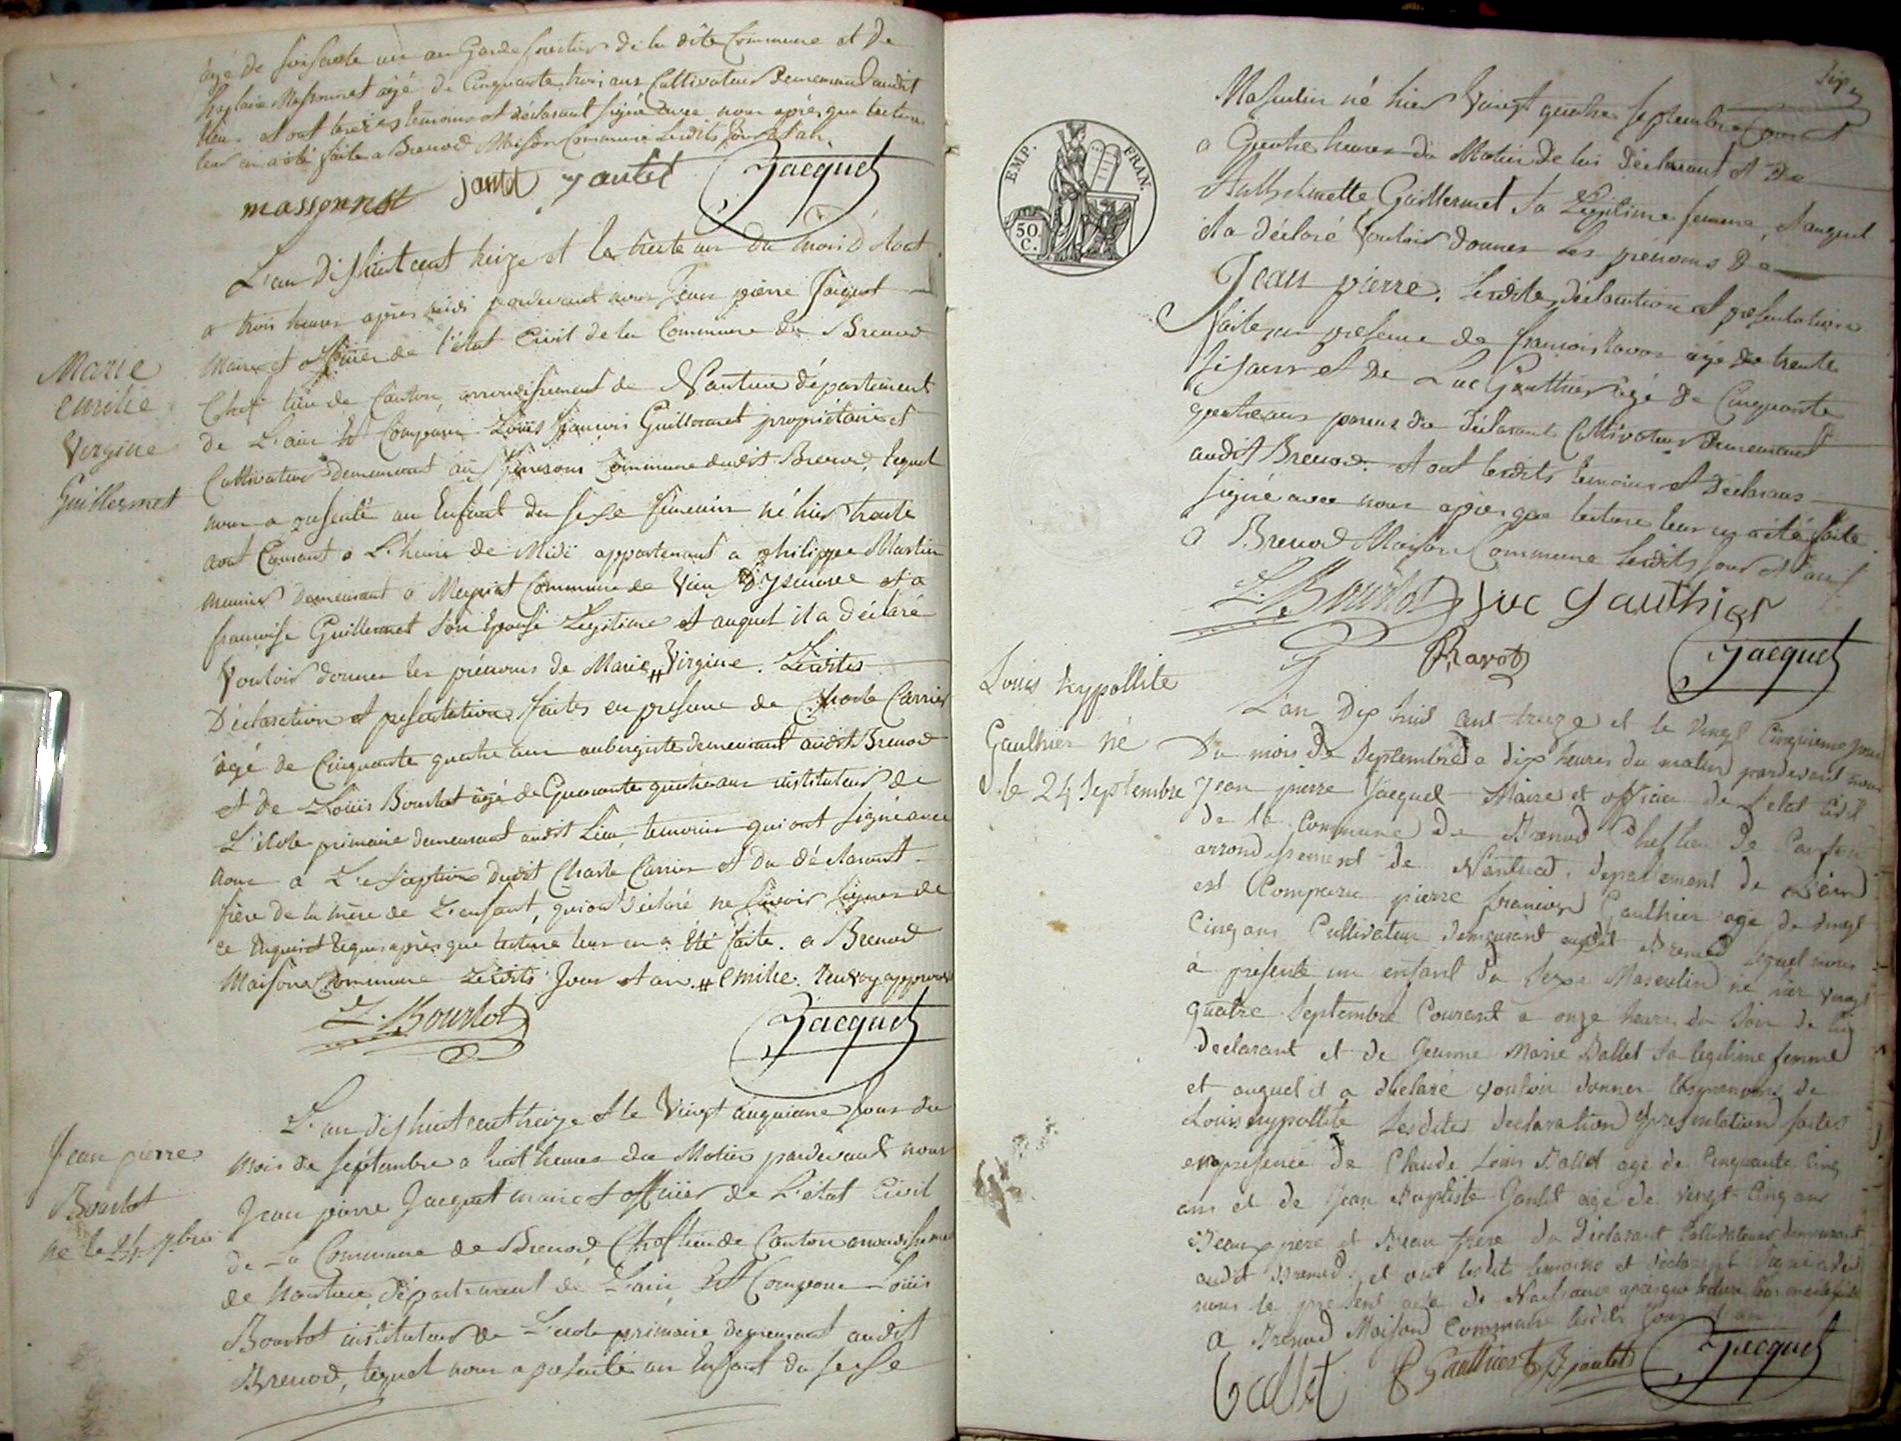 âgé de soisante un an Garde forestier de la dite Commune et de
Massonnet agé de Cinquante trois ans Cultivateur Demeurant audit
lieu. et ont lesdits temoins et déclarant signé avec nous après que lecture
leur en a été faite a Brenod Maison Commune lesdits jour et an
massonnet jantet jantet Jacquet
L'an dix huit cent treize et le trente un du mois d'Aout
a trois heures après midi pardevant nous Jean pierre Jacquet
Maire et officier de l'état Civil de la Commune de Brenod
Chef lieu de Canton, arrondissement de Nantua département
de L'ain Est Comparu Louis françois Guillermet propriétaire et
Cultivateur demeurant aux Commune dudit Brenod, lequel
nous a presenté un Enfant du sexe féminin né hier trente
aout Courant a L'heure de Midi appartenant a philippe Martin
meunier demeurant a Meyriat Commune de Vieu D'Yzenave et a
françoise Guillermet son Epouse Legitime et auquel il a déclaré
Vouloir donner les prénoms de Marie # Virginie. Lesdites
Déclaration et presentation faites en presence de Charle Carrier
âgé de Cinquante quatre ans aubergiste demeurant audit Brenod
et de Louis Bourlot âgé de Quarante quatre ans instituteur de
L'école primaire demeurant audit Lieu, temoins qui ont signé avec
nous a L'exception dudit Charle Carrier et du déclarant
frère de la mère de L'enfant, qui ont déclaré ne savoir signer de
ce Enquis et Requis après que lecture leur en a été faite. a Brenod
Maison Commune Lesdits Jour et an. # emilie. Renvoy approuvé
L. Bourlot Jacquet
Marie
emilie
Virginie
Guillermet
L'an dix huit cent treize et le Vingt cinquieme Jour du
mois de septembre a huit heures du Matin pardevant nous
Jean pierre Jacquet maire et officier de L'état Civil
de La Commune de Brenod Chef lieu de Canton arrondissement
de Nantua, département de L'ain, Est Comparu Louis
Bourlot instituteur de L'école primaire demeurant audit
Brenod, lequel nous a presenté un Enfant du sexe
Jean pierre
Bourlot
né le 24 7.bre
Masculin né hier Vingt quatre septembre Courant
a Quatre heures du Matin de lui déclarant et De
Anthelmette Guillermet sa Legitime femme, et auquel
il a déclaré Vouloir donner les prénoms De
Jean pierre. Lesdites déclaration et presentation
faites en presence de françois Ravot âgé de trente
six ans et De Luc Gauthier âgé De Cinquante
quatre ans parens du déclarant Cultivateurs Demeurant
audit Brenod. et ont lesdits temoins et déclarans
signé avec nous après que lecture leur en a été faite
a Brenod Maison Commune lesdits jour et an
EMP. FRAN.
50. C.
L. Bourlot Luc Gauthier
Ravot Jacquet
Louis hypollite
Gauthier né
le 24 Septembre
L'an dix huit cent treize et le vingt cinquieme jour
du mois de Septembre a dix heures du matin pardevant nous
Jean pierre Jacquet Maire et officier de l'etat Civil
de la Commune de Brenod Chef lieu de Canton
arrondissement de Nantua, departement de L'ain
est Comparu pierre francois Gauthier agé de vingt
Cinq ans Cultivateur demeurant audit Brenod lequel nous
a presenté un enfant du sexe Masculin né hier vingt
quatre Septembre Courant a onze heures du soir de lui
declarant et de Jeanne Marie Ballet sa legitime femme
et auquel il a declaré vouloir donner les prenoms de
Louis hypollite Lesdites declaration et presentation faites
en presence de Claude Louis Ballet agé de Cinquante Cinq
ans et de Jean Baptiste Jantet agé de vingt Cinq ans
Beau pere et Beau frere du declarant Cultivateurs demeurant
audit Brenod. et ont lesdits temoins et declarant signé avec
nous le present acte de Naissance apres que lecture leur en a eté faite
a Brenod Maison Commune lesdits jour et an
Ballet P Gauthier B jantet Jacquet